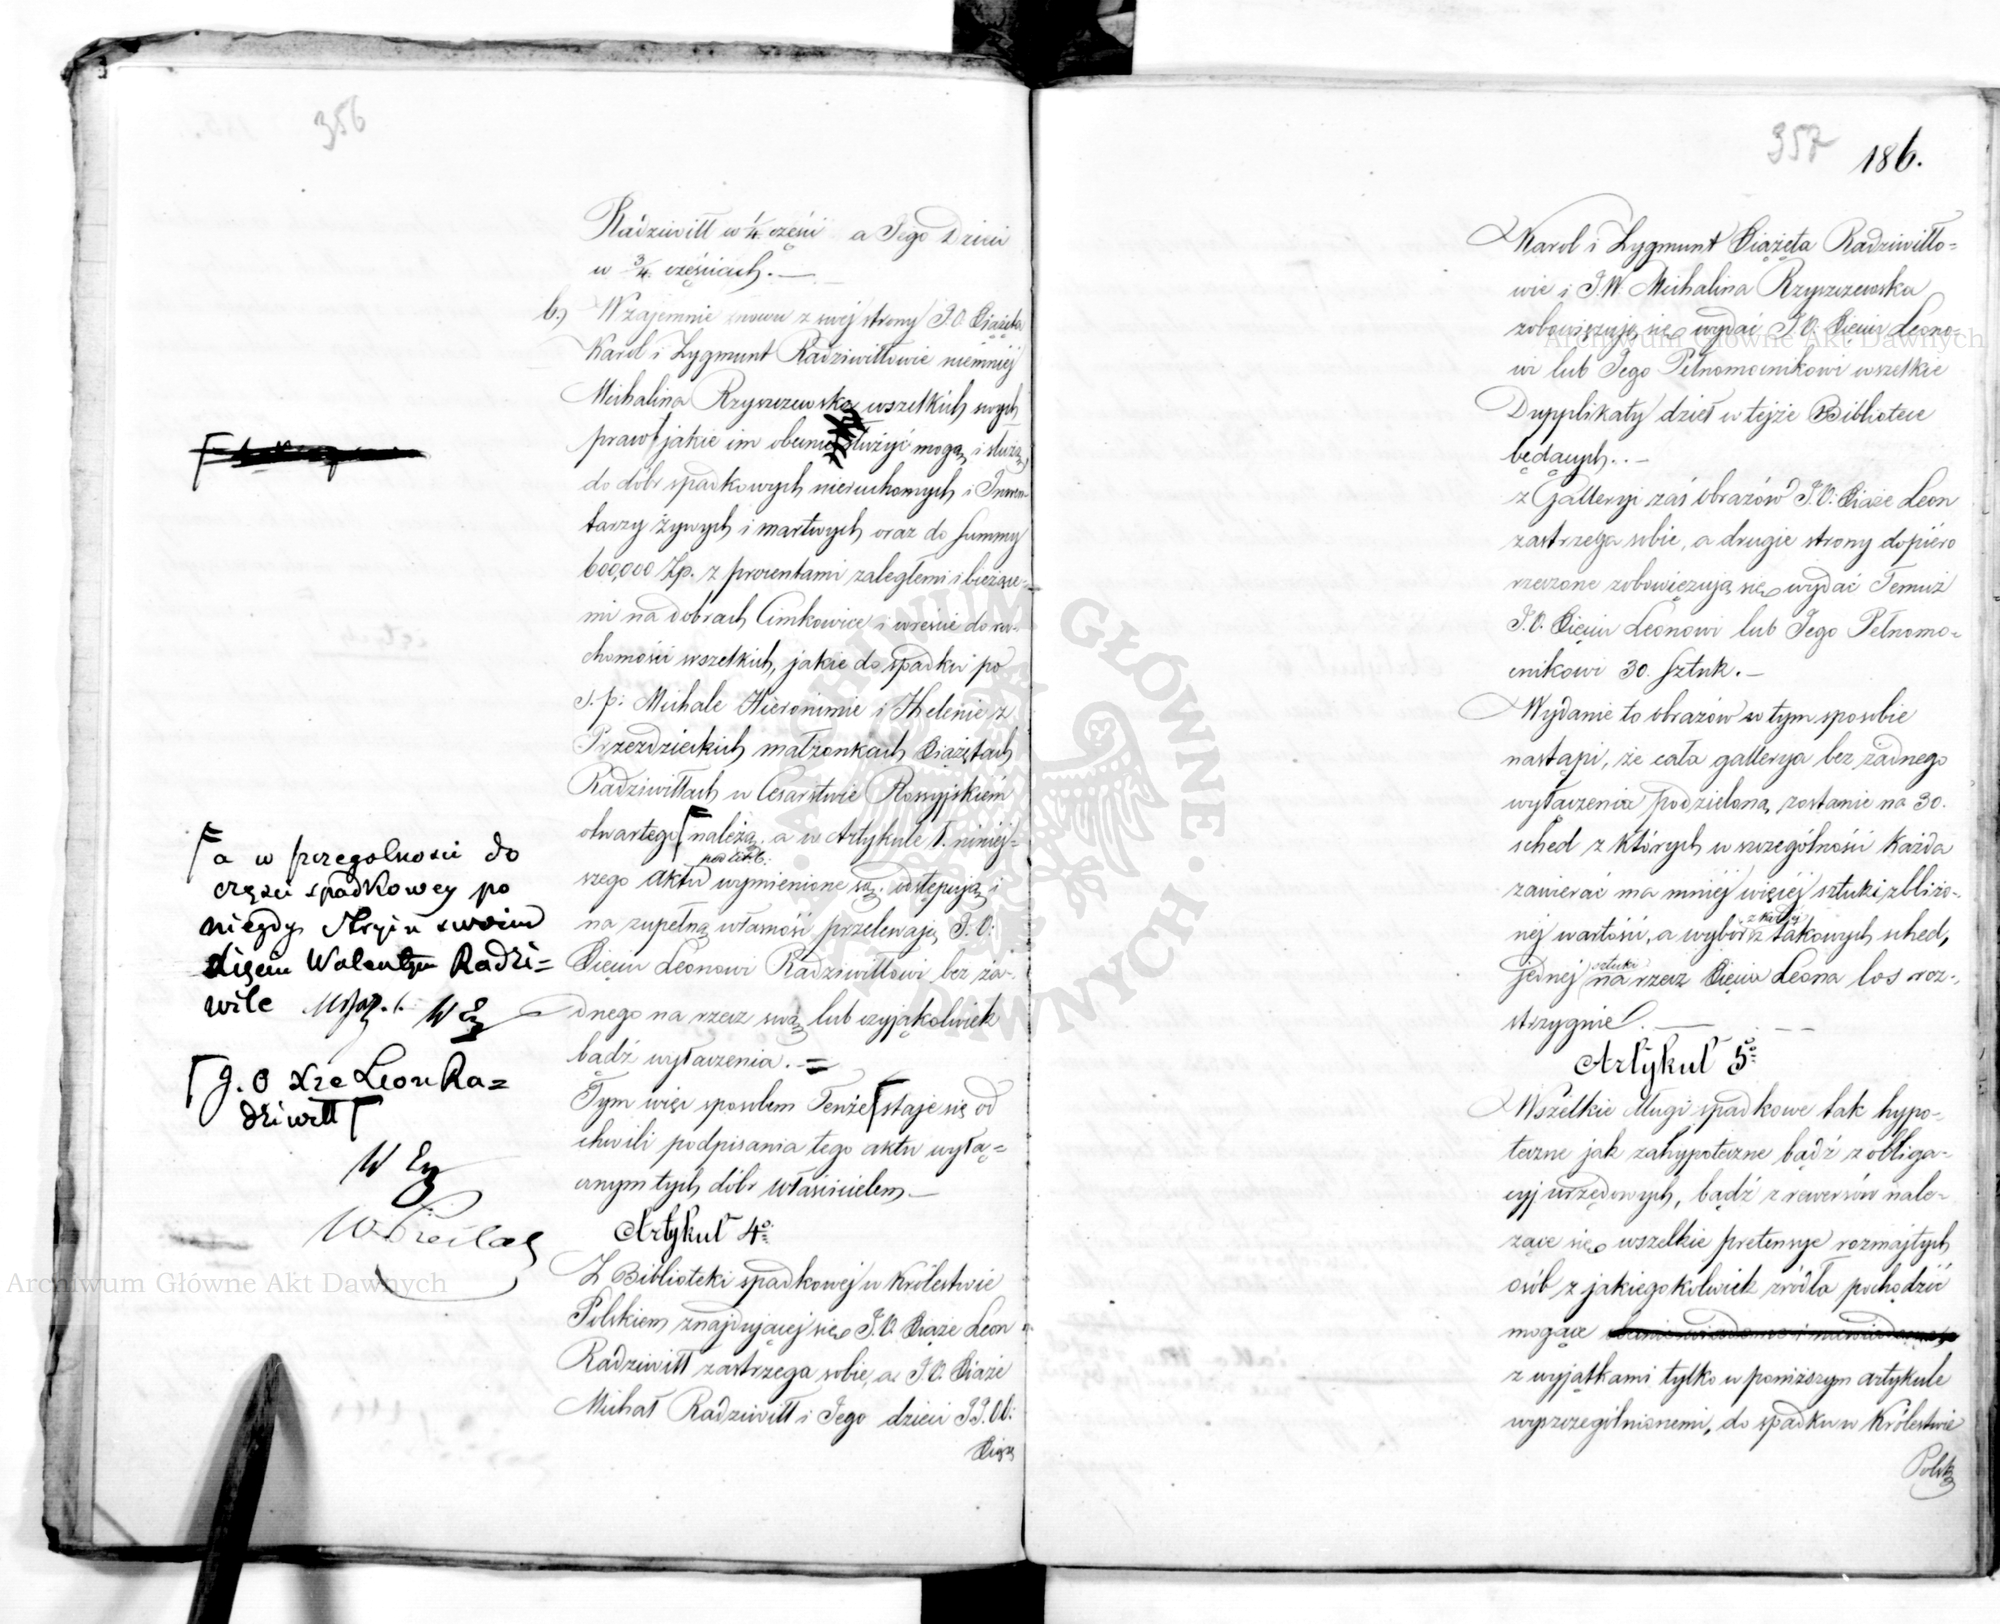 356
Radziwiłł w 1/4 części a Jego Dzieci
w 3/4 częściach. —
b.) Wzajemnie znowu z swej strony J.O. Xiążęta
Karol i Zygmunt Radziwiłłowie niemniej
Michalina Rzyszczewska wszelkich swych
praw jakie im obecnie służyć mogą i służą,
do dóbr spadkowych nieruchomych i Inwen-
tarzy żywych i martwych oraz do Summy
600,000 Zp. z procentami zaległemi i bieżące-
mi na dobrach Cimkowice i wreście do ru-
chomości wszelkich, jakie do spadku po
ś. p: Michale Hieronimie i Helenie z
Przezdzieckich małżonkach Xiążętach
Radziwiłłach w Cesarstwie Rossyjskiém
otwartego należą a w Artykule 1. niniej-
pod lit. b:
szego aktu wymienione są. odstępują i
na zupełną własność przelewają J.O:
Xięciu Leonowi Radziwiłłowi bez ża-
dnego na rzecz swą lub czyjąkolwiek
bądź wyłączenia. =
Tym więc sposobem Tenże staje się od
chwili podpisania tego aktu wyłą=
cznym tych dóbr właścicielem —
Artykuł 4o:
Z Biblioteki spadkowej w Królestwie
Polskiem znajdującej się J.O. Xiąże Leon
Radziwiłł zastrzega sobie, a J.O. Xiąże
Michał Radziwiłł i Jego dzieci JJ.OO:
a w szczegolnosci do
części spadkowey po
niegdy Stryiu swoim
Xięciu Walentym Radzi=
wile
J. O Xze Leon Ra=
dziwiłł
357 186.
Karol i Zygmunt Xiążęta Radziwiłło=
wie i J.W. Michalina Rzyszczewska
zobowięzują się wydać J.O. Xięciu Leono-
wi lub Jego Pełnomocnikowi wszelkie
Dupplikaty dzieł w tejże Bibliotece
będących. . —
z Galleryi zaś obrazów J.O: Xiąże Leon
zastrzega sobie, a drugie strony dopiéro
rzeczone zobowięzują się wydać Temuż
J.O. Xięciu Leonowi lub Jego Pełnomo-
cnikowi 30. Sztuk. —
Wydanie to obrazów w tym sposobie
nastąpi, że cała gallerya bez żadnego
wyłączenia podzieloną zostanie na 30.
sched z których w szczególności każda
zawierać ma mniéj więcéj sztuki zbliżo-
z każdej
néj wartości, a wybór z takowych sched,
sztuki
jednej na rzecz Xięcia Leona los roz-
strzygnie. —
Artykuł 5o:
Wszelkie długi spadkowe tak hypo-
teczne jak zahypoteczne bądź z obliga-
cyj urzędowych, bądź z rewersów nale-
żące się wszelkie pretensye rozmajtych
osób z jakiegokolwiek zródła pochodzić
mogące
z wyjątkami tylko w poniższym artykule
wyszczególnionemi, do spadku w Królestwie
Polsk
Archiwum Główne Akt Dawnych
Archiwum Główne Akt Dawnych
ARCHIWUM GŁÓWNE AKT DAWNYCH